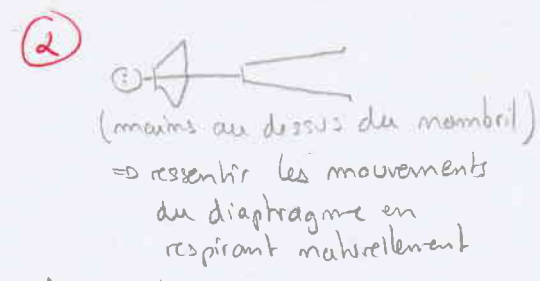 2
(mains au dessus du nombril)
=> ressentir les mouvements
du diaphragme en
respirant naturellement